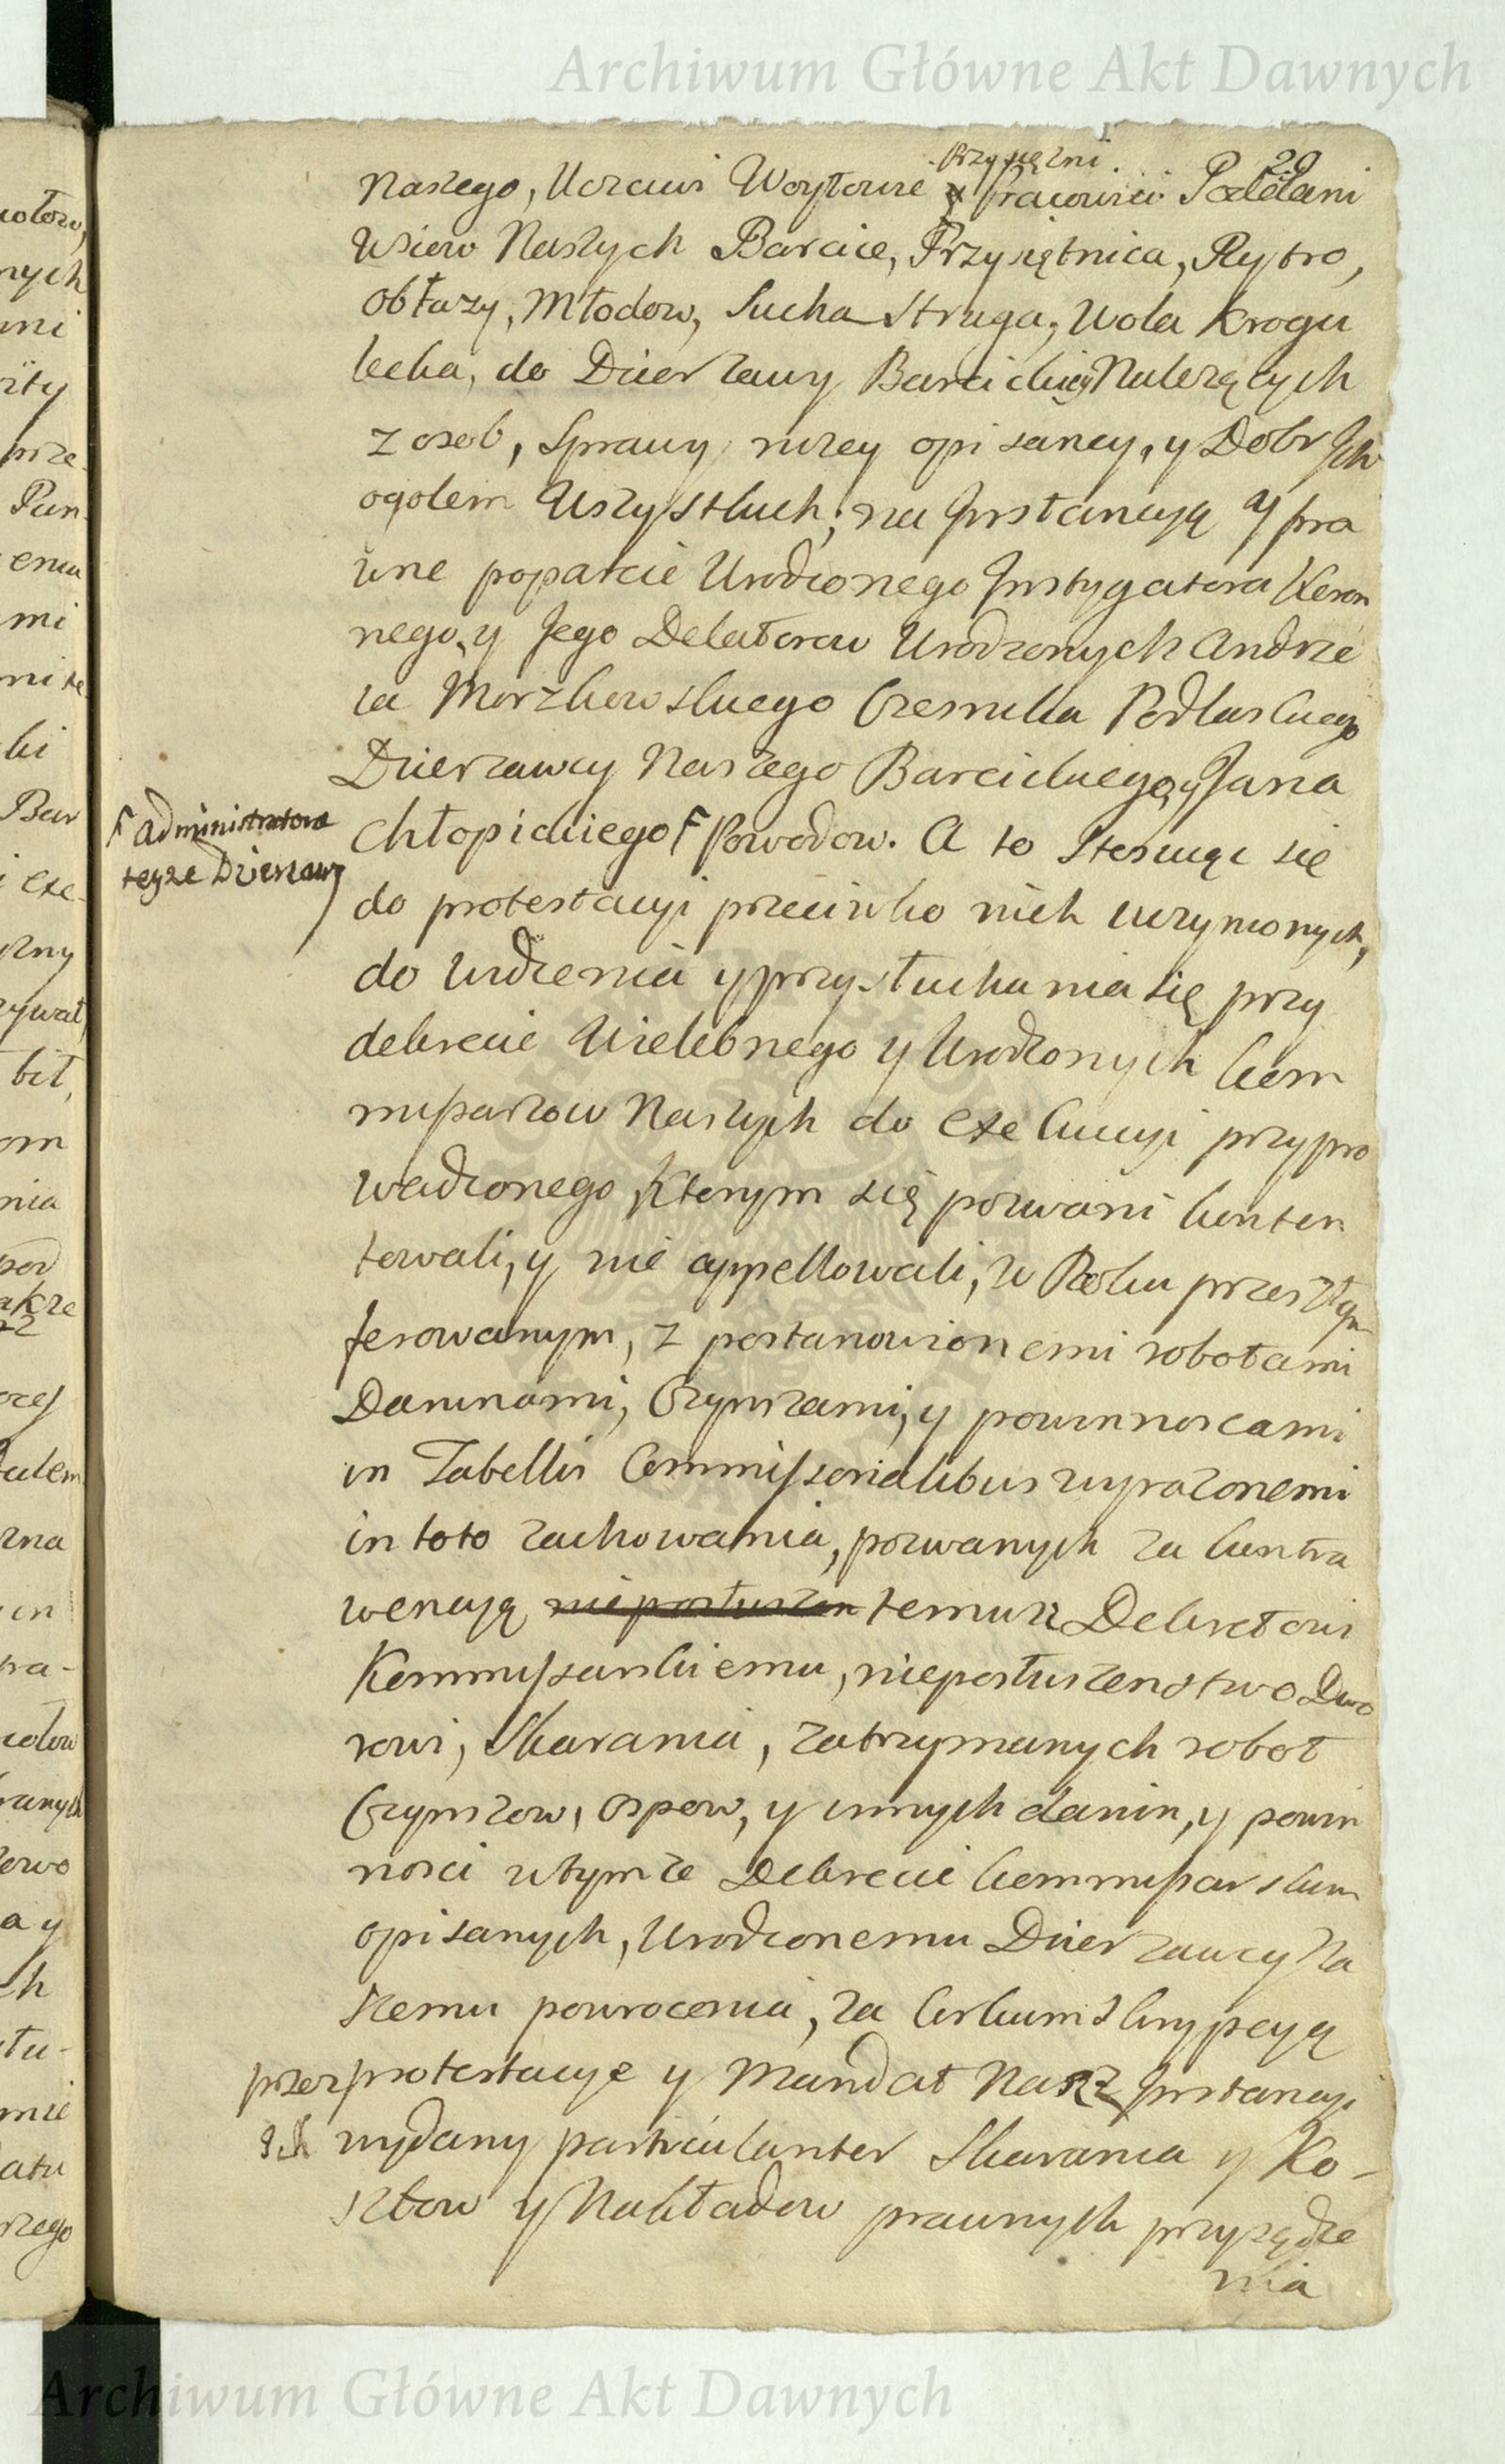 Archiwum Główne Akt Dawnych
20
Przysiężni
Naszego, Uczciwi Woytowie y Pracowici Poddani
Wsiow Naszych Barcice, Przysiętnica, Rytro,
Obłazy, Młodow, Sucha Struga, Wola Krogu
lecka, do Dzierzawy Barcickiey Nalezących
z osob, Sprawy nizey opisaney, y Dobr Ich
ogolem Wszystkich; na Instancyą y pra
wne poparcie Urodzonego Instygatora Koron
nego, y Jego Delatorow Urodzonych Andrze
ia Morzkowskiego Czesnika Podlaskiego
Dzierzawcy Naszego Barcickiego, y Jana
Chłopickiego F Powodow. A to Stosuiąc się
F administratora
teyze Dzierzawy
do protestacyi przeciwko nich uczynionych,
do widzenia y przysłuchania się przy
dekrecie Wielebnego y Urodzonych Kom
missarzow Naszych do Exekucyi przypro
wadzonego, ktorym się pozwani konten
towali, y nie appellowali, w Roku przeszłym
ferowanym, z postanowionemi robotami
Daninami, Czynszami, y powinnoscami
in Tabellis Commissorialibus wyrazonemi
in toto zachowania, pozwanych za kontra
wencyą nieposłuszen temuz Dekretowi
Kommissarskiemu, nieposłuszenstwo Dwo
rowi, Skarania, zatrzymanych robot
Czynszow, Ospow, y innych danin, y powin
nosci w tymze Dekrecie kommissarskim
opisanych, Urodzonemu Dzierzawcy Na
szemu powrocenia, za Cirkumskrypcyą
przez protestacye y Mandat Nasz Instancyi
Ich wydany particulariter Skarania y Ko-
sztow y Nakładow prawnych przysądze
nia
Archiwum Główne Akt Dawnych